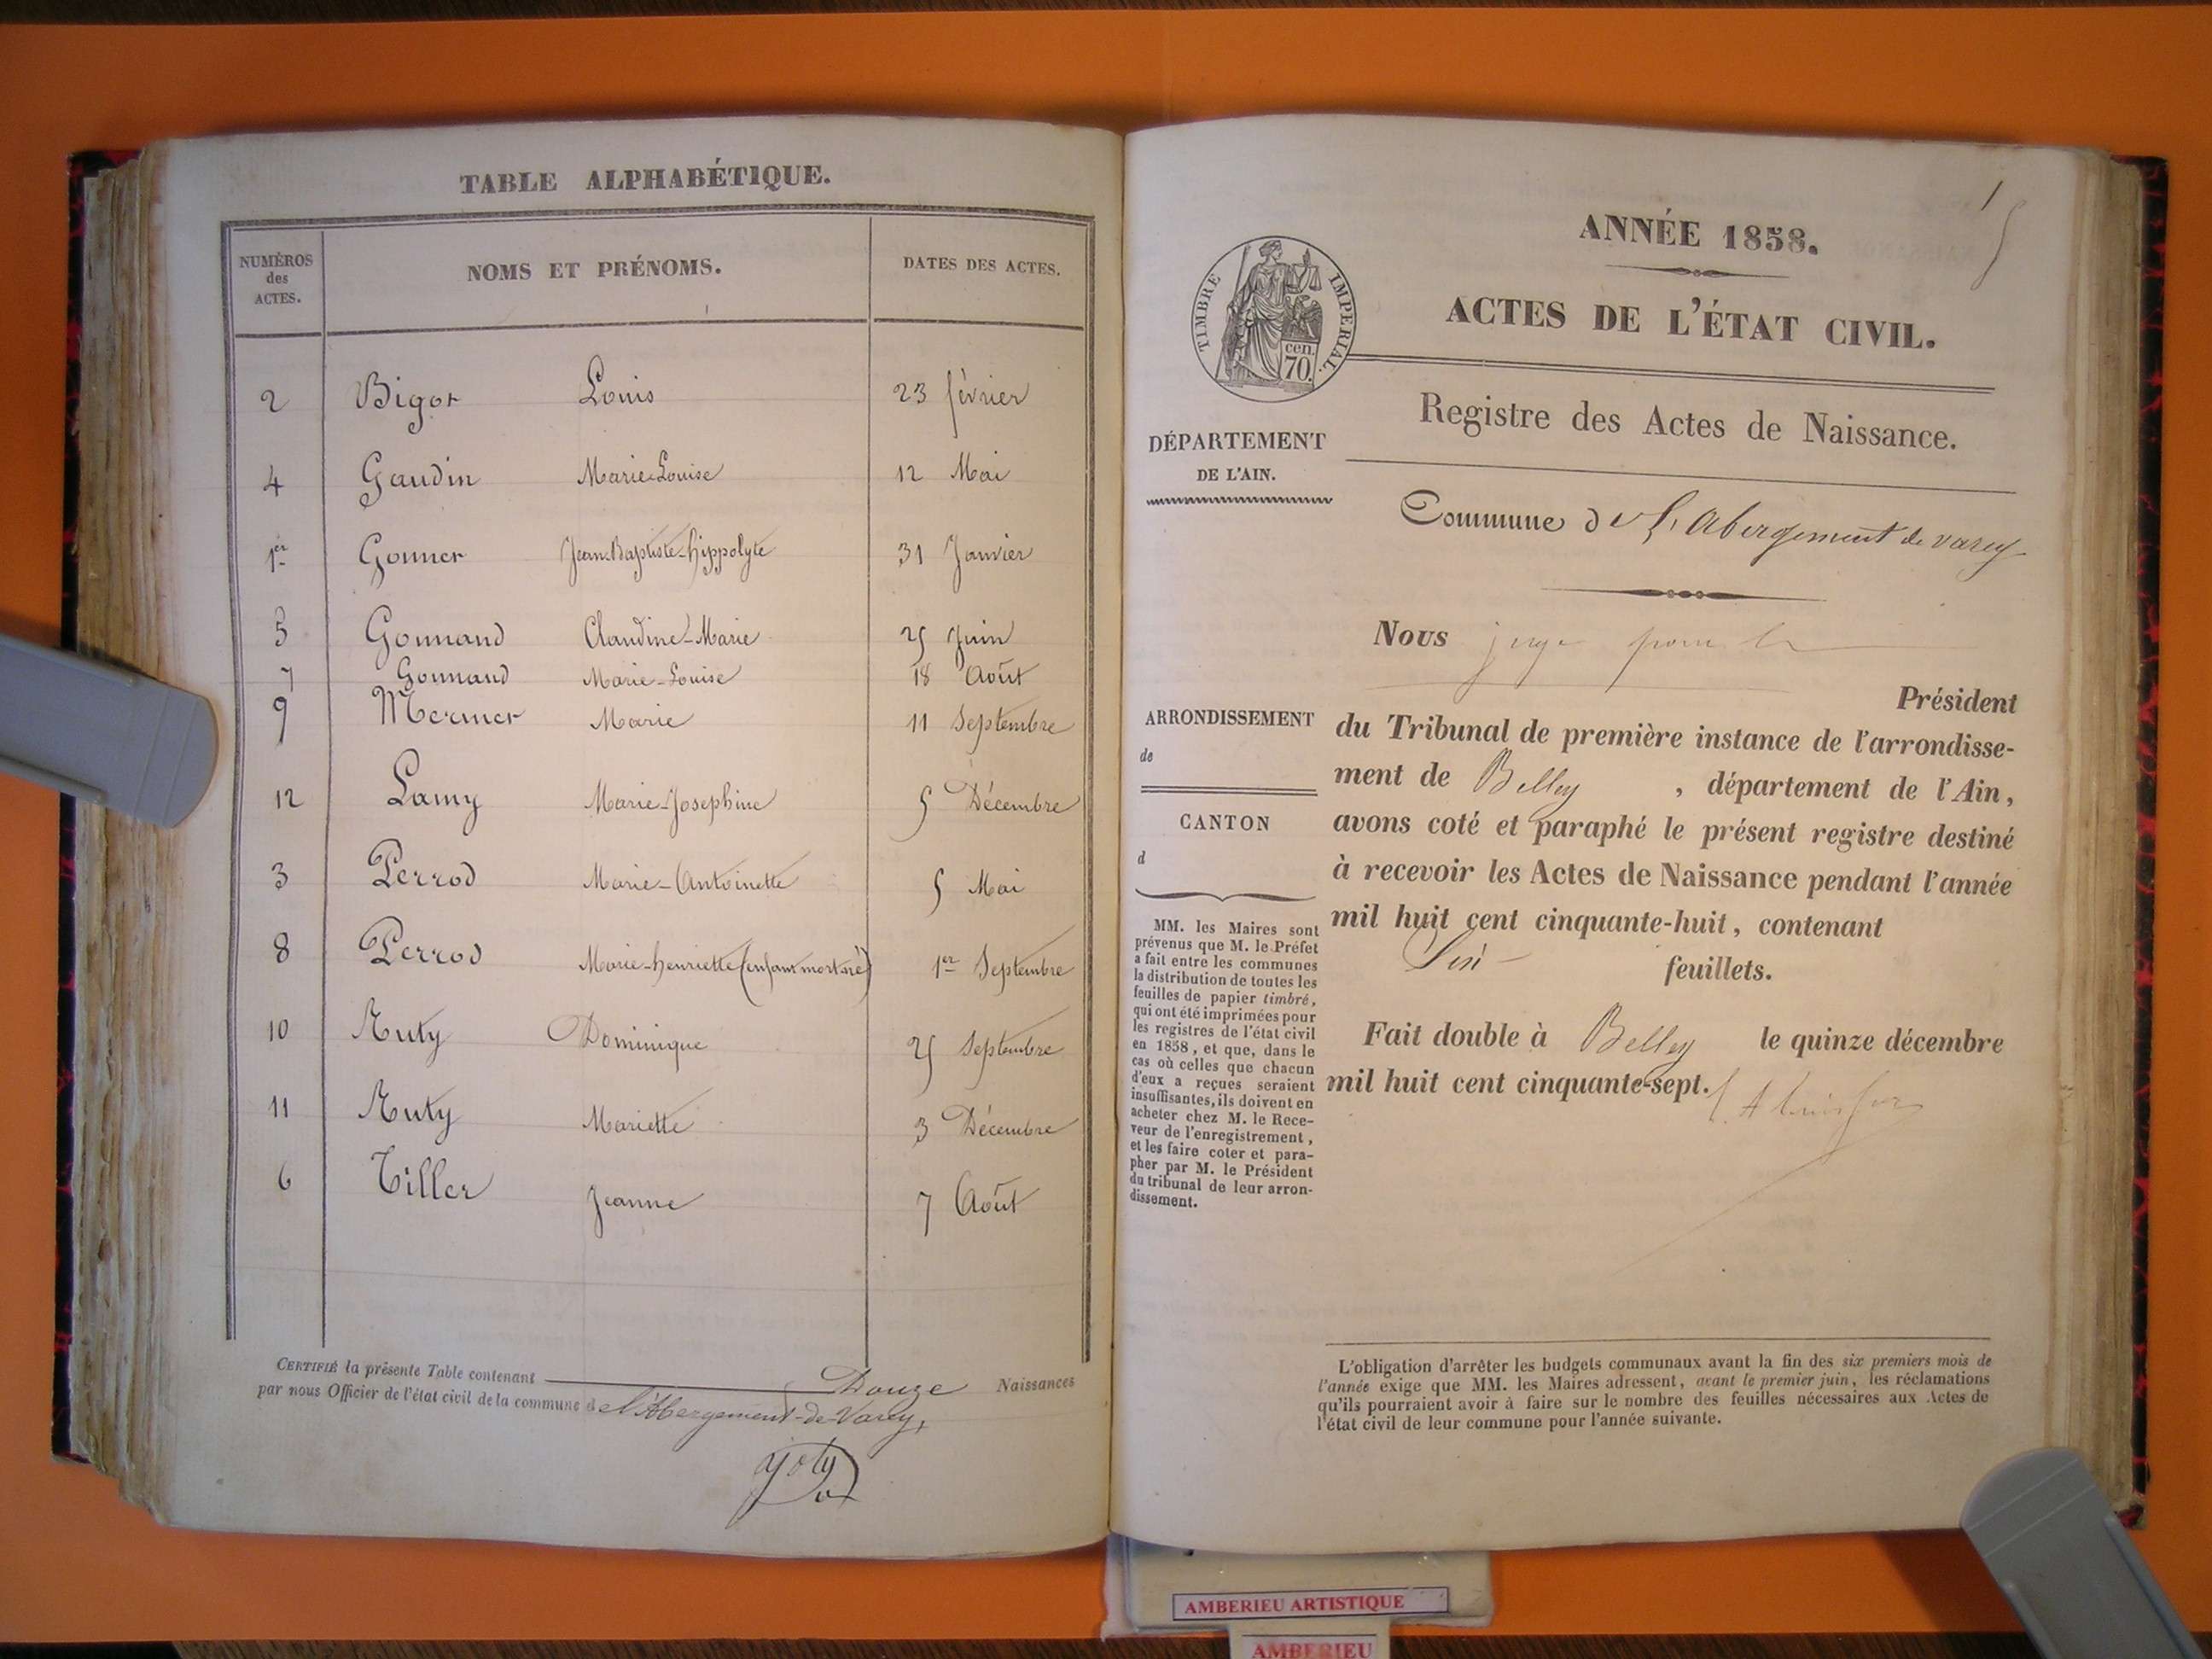 TABLE ALPHABÉTIQUE.
NUMÉROS des ACTES. NOMS ET PRÉNOMS. DATES DES ACTES.
2 Bigot Louis 23 février
4 Gaudin Marie-Louise 12 Mai
1er Gonnet Jean-Baptiste-hippolyte 31 Janvier
5 Gonnand Claudine-Marie 25 Juin
7 Gonnand Marie-Louise 18 Août
9 Mermet Marie 11 Septembre
12 Lamy Marie-Josephine 5 Décembre
3 Perrod Marie-Antoinette 5 Mai
8 Perrod Marie-henriette (enfant mort né) 1er Septembre
10 Ruty Dominique 25 Septembre
11 Ruty Mariette 3 Décembre
6 Tiller Jeanne 7 Août
CERTIFIÉ la présente Table contenant Douze Naissances
par nous Officier de l'état civil de la commune de l'Abergement-de-Varey,
1
ANNÉE 1858.
TIMBRE IMPERIAL
cen. 70.
ACTES DE L'ÉTAT CIVIL.
Registre des Actes de Naissance.
DÉPARTEMENT
DE L'AIN.
Commune de L'Abergement de varey
Nous juge pour le
Président
du Tribunal de première instance de l'arrondisse-
ment de Belley , département de l'Ain,
avons coté et paraphé le présent registre destiné
à recevoir les Actes de Naissance pendant l'année
mil huit cent cinquante-huit, contenant
feuillets.
Fait double à Belley le quinze décembre
mil huit cent cinquante-sept.
ARRONDISSEMENT
de
CANTON
d
MM. les Maires sont
prévenus que M. le Préfet
a fait entre les communes
la distribution de toutes les
feuilles de papier timbré,
qui ont été imprimées pour
les registres de l'état civil
en 1858, et que, dans le
cas où celles que chacun
d'eux a reçues seraient
insuffisantes, ils doivent en
acheter chez M. le Rece-
veur de l'enregistrement,
et les faire coter et para-
pher par M. le Président
du tribunal de leur arron-
dissement.
L'obligation d'arrêter les budgets communaux avant la fin des six premiers mois de
l'année exige que MM. les Maires adressent, avant le premier juin, les réclamations
qu'ils pourraient avoir à faire sur le nombre des feuilles nécessaires aux Actes de
l'état civil de leur commune pour l'année suivante.
AMBERIEU ARTISTIQUE
AMBERIEU